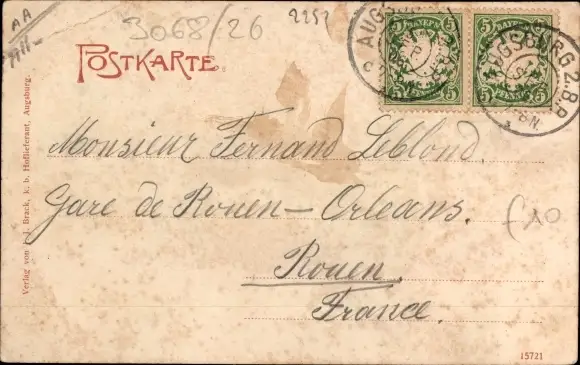 AA
3068/26
2252
POSTKARTE.
BAYERN
5 5
PFENNIG
BAYERN
5 5
PFENNIG
AUGSBURG 2.B.P.
Monsieur Fernand Leblond.
Gare de Rouen – Orleans.
£10
Rouen.
France.
Verlag von F. J. Brack, k. b. Hoflieferant, Augsburg.
15721